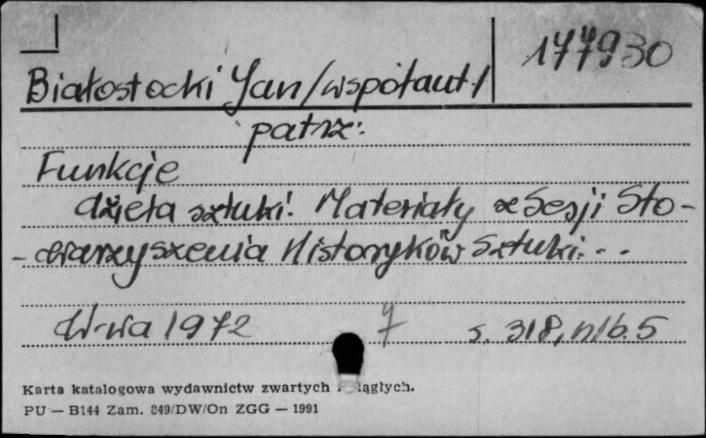 177930
Białostocki Jan /współaut./
patrz:
Funkcje
dzieła sztuki. Materiały z Sesji Sto-
-warzyszenia Historyków Sztuki...
W-wa 1972 7 s. 318, nlb. 5
Karta katalogowa wydawnictw zwartych i ciągłych.
PU — B144 Zam. 849/DW/On ZGG — 1991